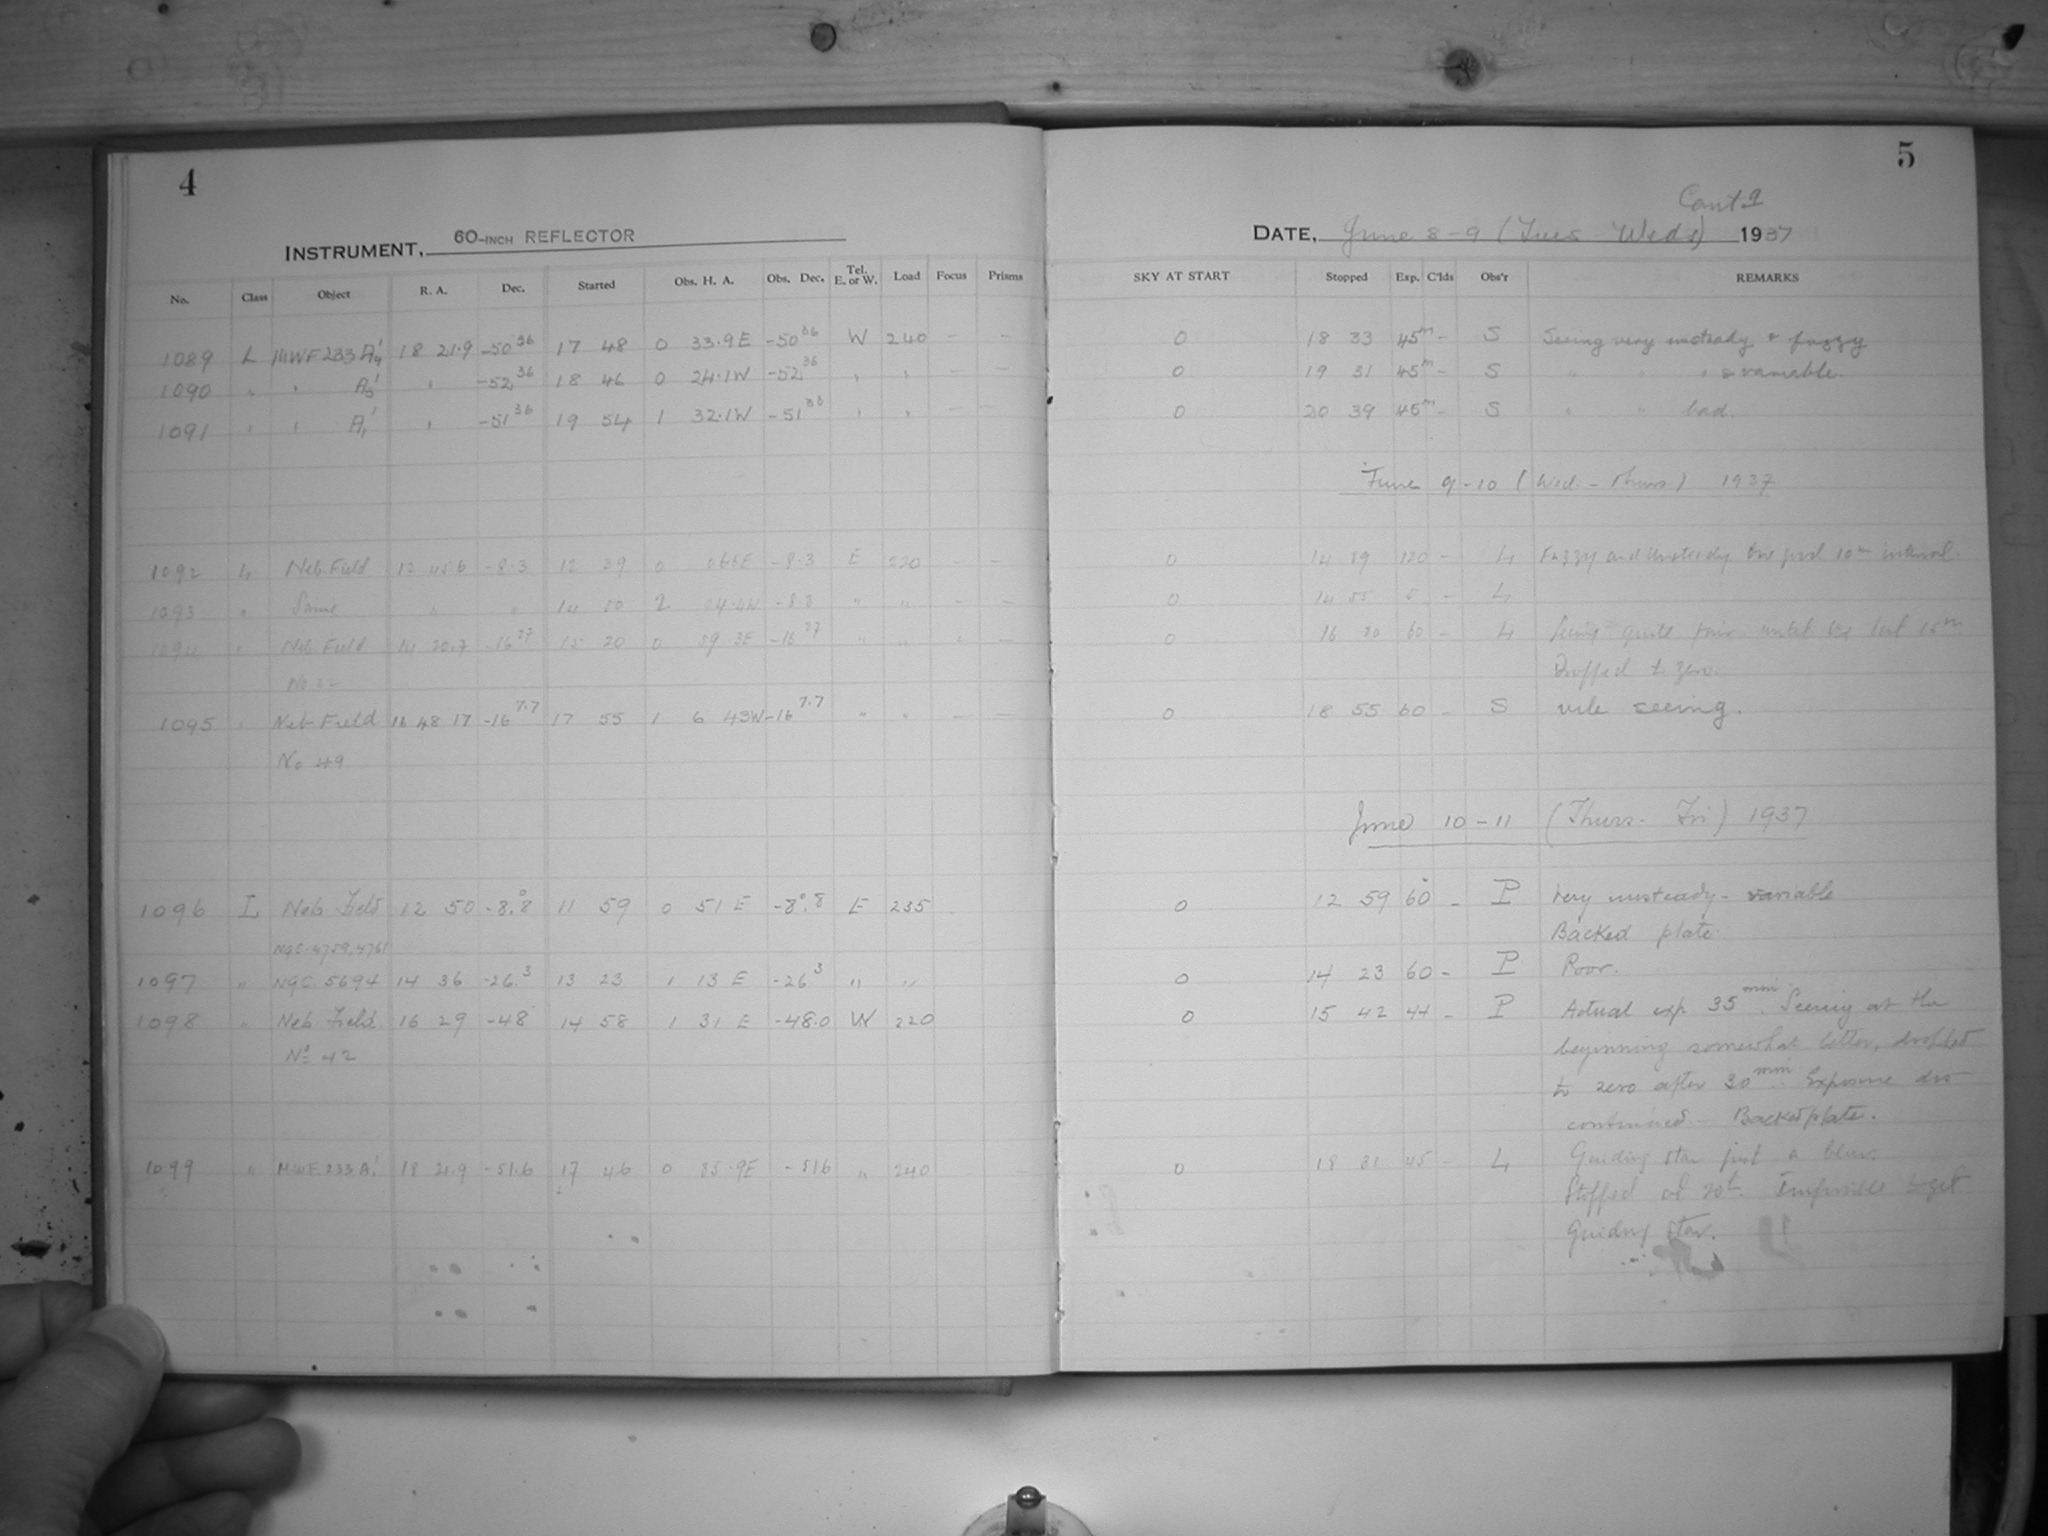 4
INSTRUMENT, 60-INCH REFLECTOR
No. Class Object R. A. Dec. Started Obs. H. A. Obs. Dec. Tel. E. or W. Load Focus Prisms
1089 L MWF 233 18 21.9 -50 36 17 48 0 33.9 E -50 36 W 240 - -
1090 " " " -52 36 18 46 0 24.1 W -52 36 " " - -
1091 " " A1' " -51 36 19 54 1 32.1 W -51 " " - -
1092 L Neb. Field 12 45.6 -8.3 12 39 0 -8.3 E 220 - -
1093 " Same " " 14 50 2 04.4W -8.3 " " - -
1094 " Neb. Field 14 20.7 -16 27 15 20 0 59 3E -16 27 " " " -
1095 " Neb Field 16 48 17 -16 7.7 17 55 1 6 43W -16 7.7 " " - -
No 49
1096 L Neb. Field 12 50 -8.8 11 59 0 51 E -8°.8 E 235
NGC. 4759, 4761
1097 " NGC. 5694 14 36 -26.3 13 23 1 13 E -26 3 " "
1098 " Neb. Field 16 29 -48 14 58 1 31 E -48.0 W 220
Nº 42
1099 " MWF. 233 A1' 18 21.9 -51.6 17 46 0 35.9E -51.6 " 240
5
Cont'd
DATE, June 8-9 (Tues - Weds) 1937
SKY AT START Stopped Exp. C'lds Obs'r REMARKS
0 18 33 45m - S Seeing very unsteady & fuzzy
0 19 31 45m - S " " " & variable.
0 20 39 45m - S " " bad.
June 9-10 (Wed. - Thurs) 1937
0 14 39 120 - L Fuzzy and Unsteady One good 10m interval.
0 14 55 5 - L
0 16 20 60 - L Seeing quite fair until the last 15m
Dropped to zero.
0 18 55 60 - S vile seeing.
June 10-11 (Thurs. Fri) 1937
0 12 59 60 - P Very unsteady - variable
Backed plate.
0 14 23 60 - P Poor.
0 15 42 44 - P Actual exp. 35 min. Seeing at the
beginning somewhat better, dropped
to zero after 30 min. Exposure dis-
continued - Backed plate.
0 18 31 45 - L Guiding star just a blur.
Stopped at Impossible to get
Guiding star.